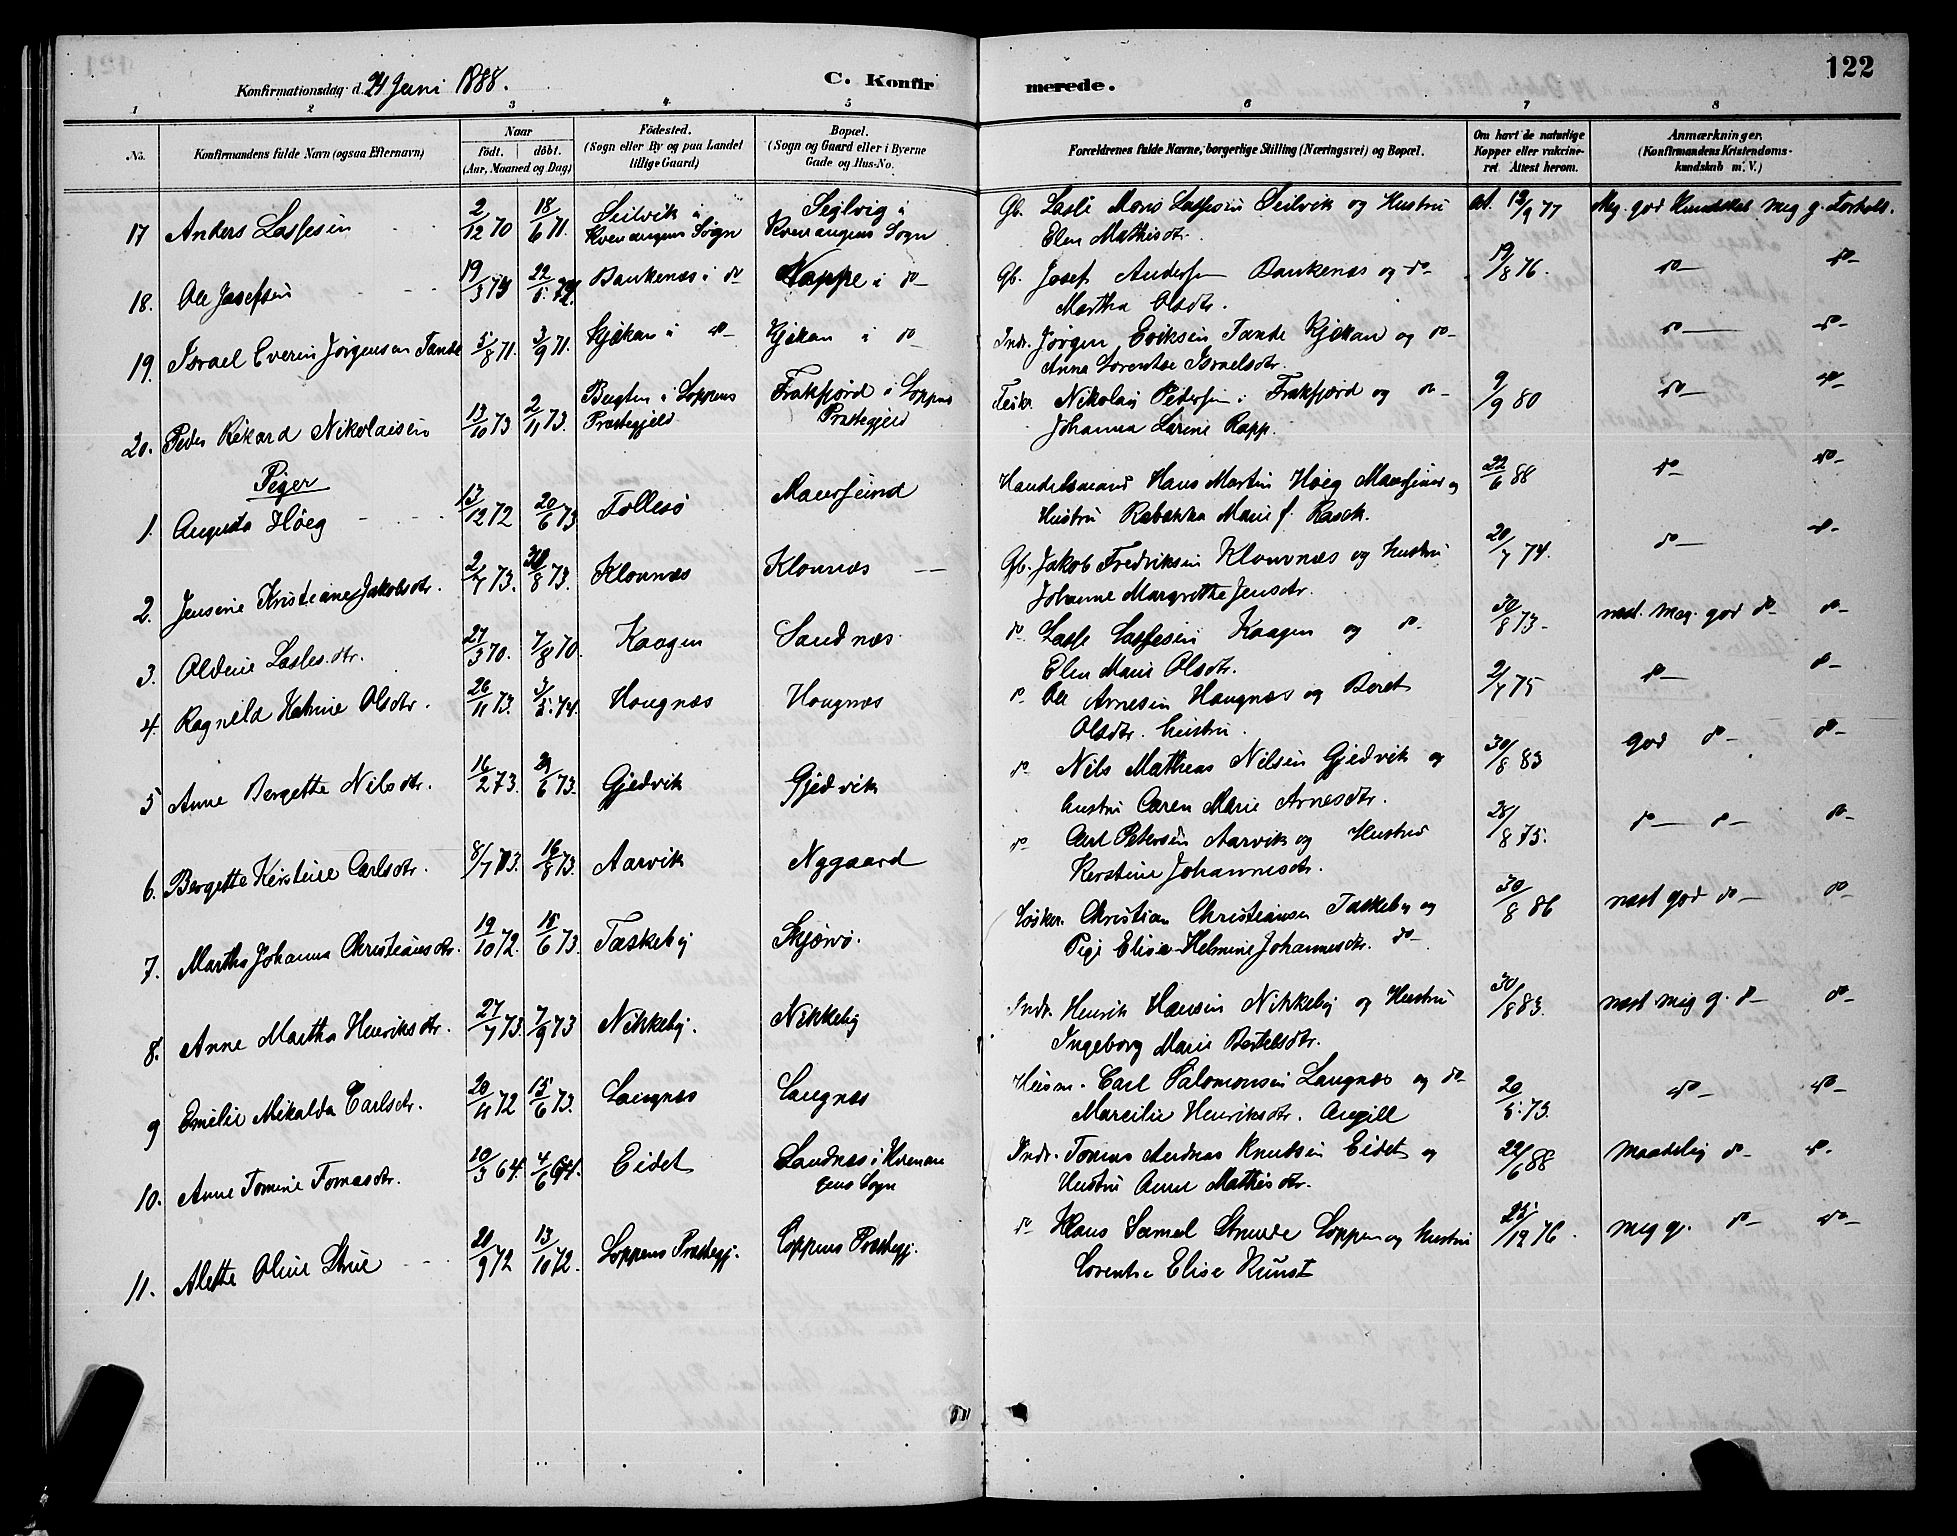 122
Konfirmationsdag d. 24 Juni 1888.
C. Konfirmerede.
1 2 3 4 5 6 7 8
No.
Konfirmandens fulde Navn (ogsaa Efternavn)
Naar
födt. döbt.
(Aar, Maaned og Dag)
Födested.
(Sogn eller By og paa Landet
tillige Gaard)
Bopæl.
(Sogn og Gaard eller i Byerne
Gade og Hus-No.
Forældrenes fulde Navne, borgerlige Stilling (Næringsvei) og Bopæl.
Om havt de naturlige
Kopper eller vakcine-
ret. Attest herom.
Anmærkninger.
(Konfirmandens Kristendoms-
kundskab m. V.)
17 Anders Lassesen 2/12 70 18/6 71. Seilvik i Kvenangens Sogn Seglvig i Kvenangens Sogn Gb. Lasse Mons Lassesen Seilvik og Hustru at. 12/9 77 Meg. god Kundskab meg g. Forhold.
Elen Mathisdtr.
18. Ole Josefsen 19/3 72 22/5 72. Bankenæs i do Nappe i do Gb. Josef Andersen Bankenæs og do 19/8 76. do do
Martha Olsdtr.
19. Israel Everin Jörgensen Tande 5/8 71. 3/9 71. Kjækan i do Kjækan i do Indr. Jörgen Eriksen Tande Kjækan og do do do
Anna Lorentse Israelsdtr.
20. Peder Rikard Nikolaisen 13/10 73 2/11 73. Bugten i Loppens Præstegjeld Frakfjord i Loppens Præstegjeld Nikolai Pedersen i Frakfjord og do 9/9 80 do do
Johanna Larine Rapp.
Piger
1. Augusta Höeg 13/12 72 20/6 73 Follesö Maursund Handelsmand Hans Martin Höeg Maursund og 22/6 88 do do
Hustru Rebekka Marie f. Rasch.
2. Jensine Kristiane Jakobsdtr. 2/7 73. 30/8 73. Klovnæs Klovnæs Gb. Jakob Fredriksen Klovnæs og Hustru 20/7 74. do do
Johanne Margrethe Jensdtr.
3. Oldine Lassesdtr. 27/3 70. 7/8 70. Kaagen Sandnæs do Lasse Lassesen Kaagen og do 30/8 73. næst. meg. god do do
Elen Marie Olsdtr.
4. Ragnild Katrine Olsdtr. 26/11 73. 3/5 74. Hougnæs Hougnæs do Ole Arnesen Haugnæs og Beret 2/7 75 do do
Olsdtr. hustru.
5 Anne Bergette Nilsdtr. 16/2 73. 29/6 73. Gjedvik Gjedvik do Nils Matheas Nilsen Gjedvik og 30/8 83 god do do
hustru Caren Marie Arnesdtr.
6. Bergette Kerstine Carlsdtr. 8/7 73. 16/8 73. Aarvik Nygaard do Carl Petersen Aarvik og Hustru 28/8 75. do do do
Kerstine Johannesdtr.
7. Martha Johanna Christiansdtr. 19/10 72. 15/6 73. Taskeby Skjervö. Löskar. Christian Christiansen Taskeby og 30/8 86 næst god do do
Pige Elise Helmine Johannesdtr. do
8. Anne Martha Henriksdtr. 27/7 73. 7/9 73 Nikkeby. Nikkeby Indr. Henrik Hansen Nikkeby og Hustru 30/8 83. næst meg g. do do
Ingeborg Marie Bertelsdtr.
9 Emelie Mikalda Carlsdtr. 20/4 72 15/6 73. Langnæs Langnæs Husm. Carl Salomonsen Langnæs og do 20/5 73. do do
Marcilie Henriksdtr. Angill
10. Anne Tomine Tomasdtr. 10/3 64. 4/6 64. Eidet Sandnæs i Kvenan
gens Sogn Indr. Tomas Andreas Knudsen Eidet og 22/6 88 maadelig do do
Hustru Anne Mathisdtr.
11. Alette Oline Strue 20/9 72 13/10 72. Loppens Præstegj. Loppens Præstegj. do Hans Samuel Struve Loppen og Hustru 25/12 76. meg g. do do
Lorentse Elise Kunst